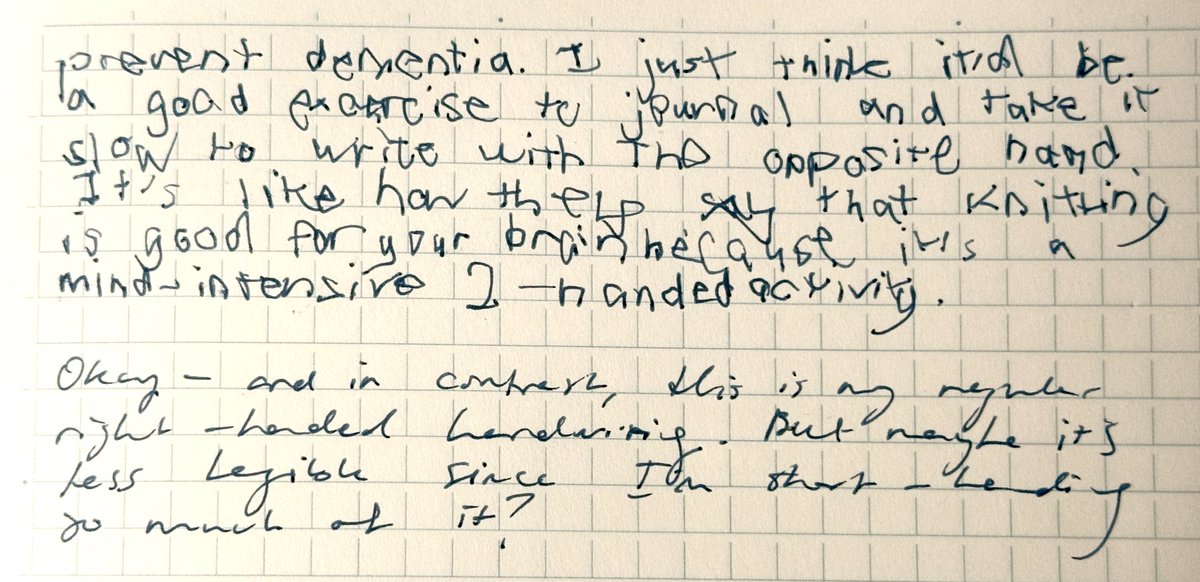 prevent dementia. I just think it'd be
a good exercise to journal and take it
slow to write with the opposite hand.
It's like how they say that knitting
is good for your brain because it's a
mind-intensive 2-handed activity.
Okay - and in contrast, this is my regular
right-handed handwriting. But maybe it's
less legible since I'm short-handing
so much of it?